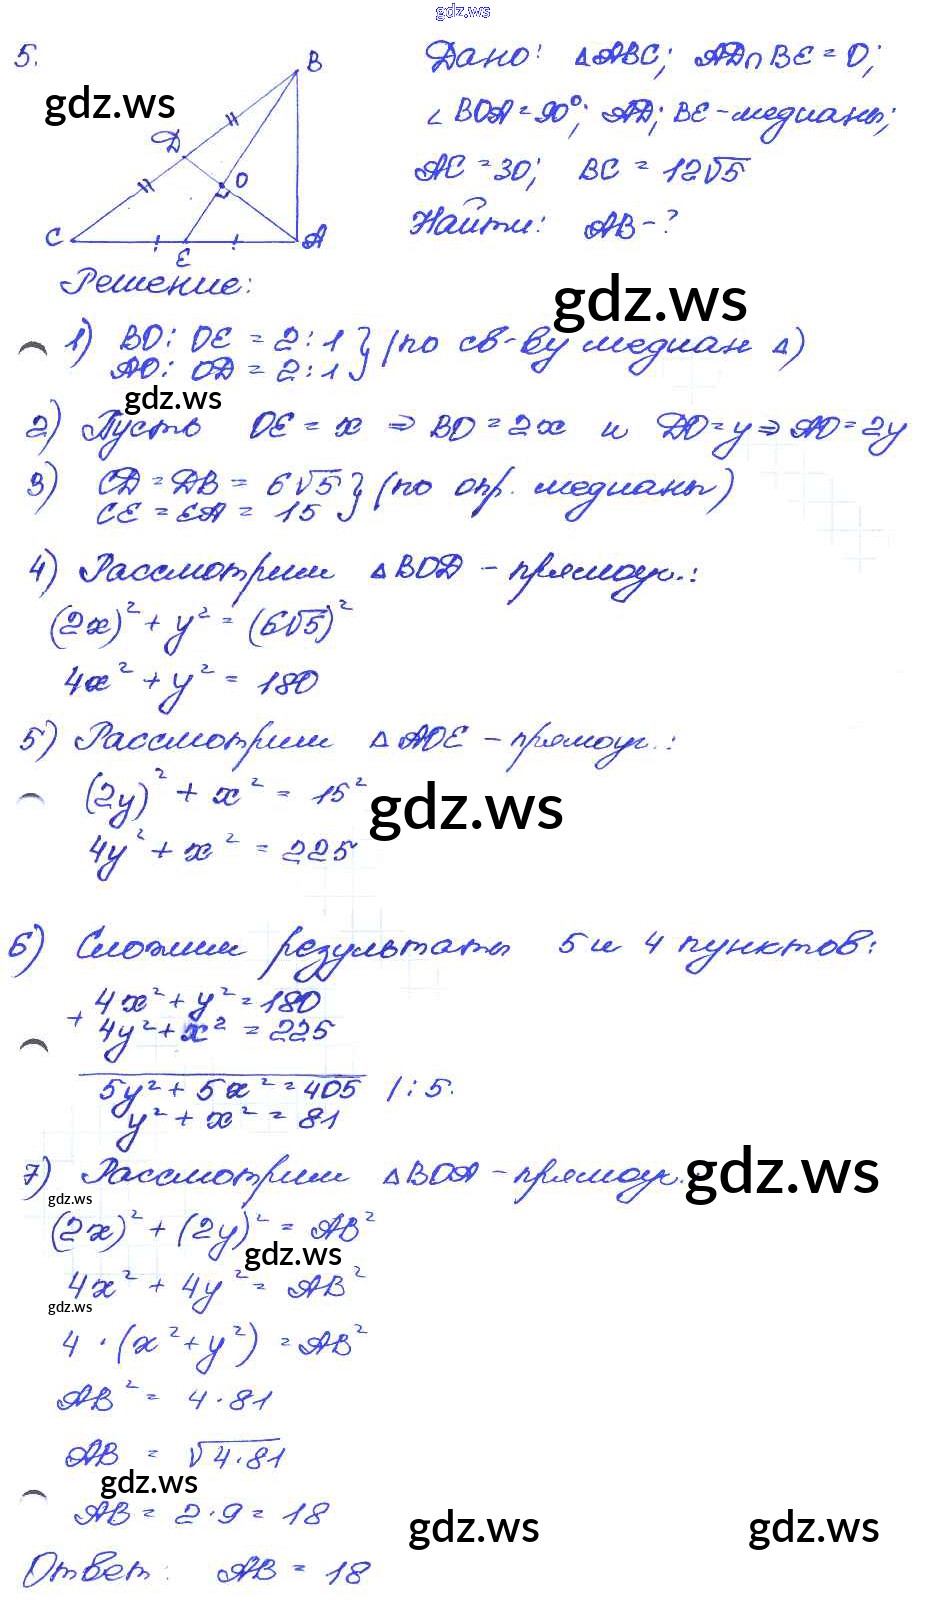 gdz.ws
5.
B
D
O
C
E
A
gdz.ws
Дано: △ABC; AD∩BE=O;
∠BOA=90°; AD; BE-медианы;
AC=30; BC=12√5
Найти: AB-?
gdz.ws
Решение:
1) BO:OE=2:1
AO:OD=2:1 } (по св-ву медиан △)
gdz.ws
2) Пусть OE=x ⇒ BO=2x и DO=y ⇒ AO=2y
3) CD=DB=6√5
CE=EA=15 } (по опр. медианы)
4) Рассмотрим △BOD - прямоуг.:
(2x)²+y²=(6√5)²
4x²+y²=180
5) Рассмотрим △AOE - прямоуг.:
(2y)²+x²=15²
gdz.ws
4y²+x²=225
6) Сложим результаты 5 и 4 пунктов:
+ 4x²+y²=180
4y²+x²=225
5y²+5x²=405 /:5.
y²+x²=81
7) Рассмотрим △BOA - прямоуг.
gdz.ws
gdz.ws
(2x)²+(2y)²=AB²
gdz.ws
4x²+4y²=AB²
gdz.ws
4·(x²+y²)=AB²
AB²=4·81
AB=√4·81
gdz.ws
AB=2·9=18
gdz.ws
gdz.ws
Ответ: AB=18